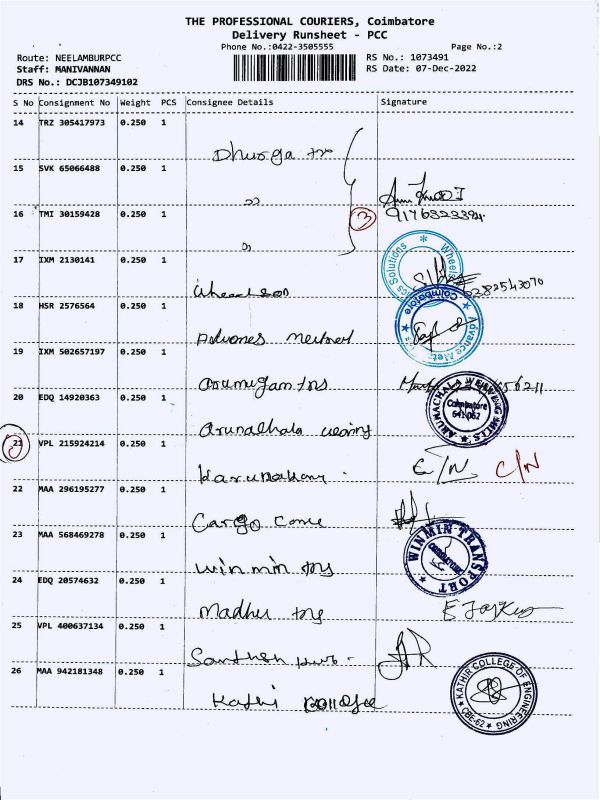 THE PROFESSIONAL COURIERS, Coimbatore
Delivery Runsheet - PCC
Phone No.:0422-3505555 Page No.:2
Route: NEELAMBURPCC RS No.: 1073491
Staff: MANIVANNAN RS Date: 07-Dec-2022
DRS No.: DCJB107349102
S No Consignment No Weight PCS Consignee Details Signature
14 TRZ 305417973 0.250 1
Dhurga
15 SVK 65066488 0.250 1
16 TMI 30159428 0.250 1
3
17 IXM 2130141 0.250 1
Wheels
Coimbatore
18 HSR 2576564 0.250 1
Advance
19 IXM 502657197 0.250 1
Arumugam trs
20 EDQ 14920363 0.250 1
Coimbatore
641 062
21 VPL 215924214 0.250 1
E/N C/N
22 MAA 296195277 0.250 1
Cargo
23 MAA 568469278 0.250 1
win min
WINMIN TRANSPORT
24 EDQ 20574632 0.250 1
Madhu
25 VPL 400637134 0.250 1
26 MAA 942181348 0.250 1
KATHIR COLLEGE OF ENGINEERING
CBE-62